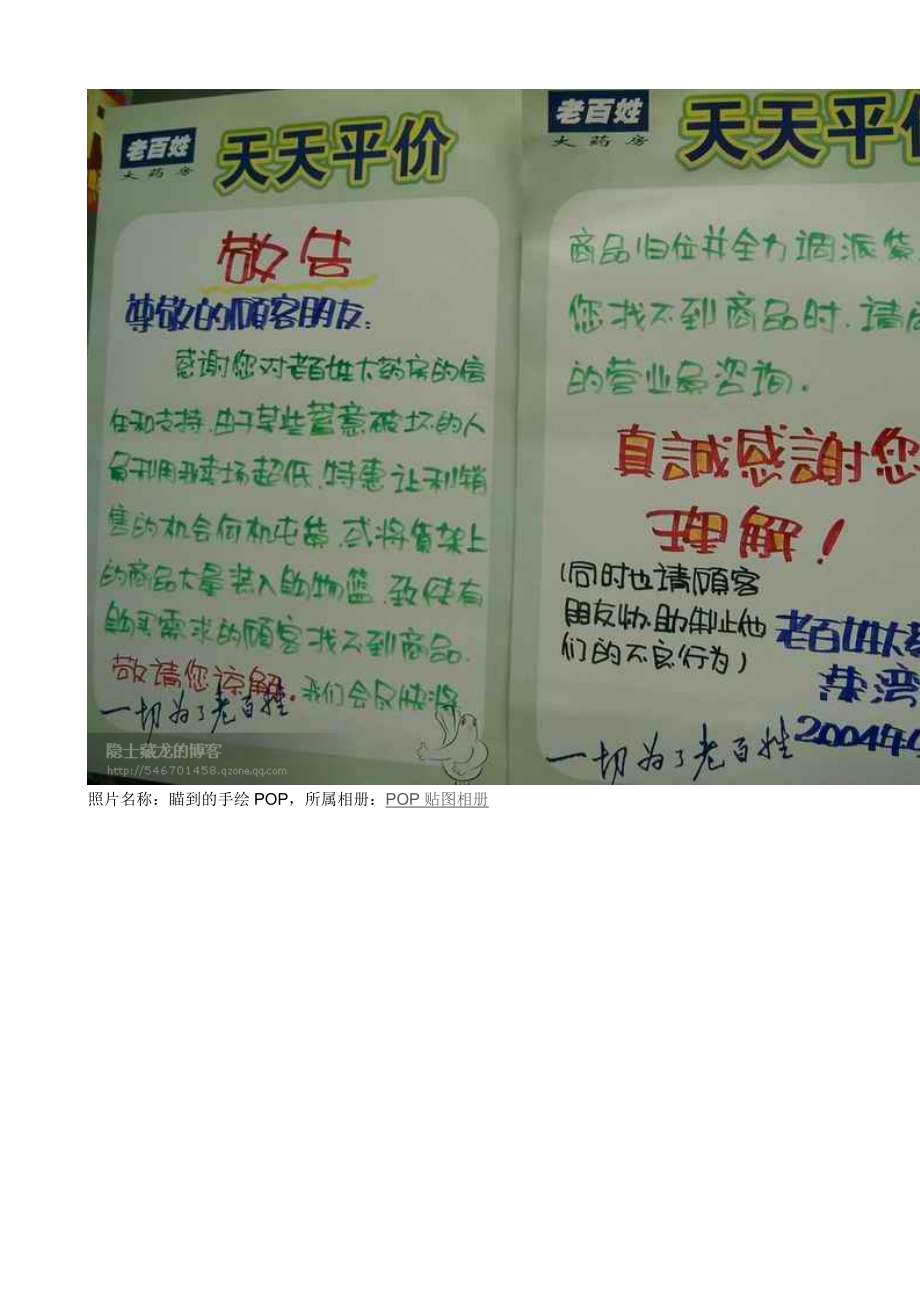 老百姓
大药房
天天平价
敬告
尊敬的顧客朋友:
感谢您对老百姓大药房的信
任和支持.由于某些蓄意破坏的人
员利用我卖场超低.特惠让利销
售的机会伺机屯货.或将货架上
的商品大量装入购物篮.致使有
购买需求的顧客找不到商品.
敬請您谅解.我们会尽快将
一切为了老百姓
隐士藏龙的博客
http://546701458.qzone.qq.com
老百姓
大药房
天天平
商品归位并全力调派紧
您找不到商品时.请
的营业员咨询.
真誠感謝您
理解!
(同时也請顧客
朋友协助制止他
们的不良行为)
老百姓大
荣湾
2004年
一切为了老百姓
照片名称：瞄到的手绘POP，所属相册：POP 贴图相册